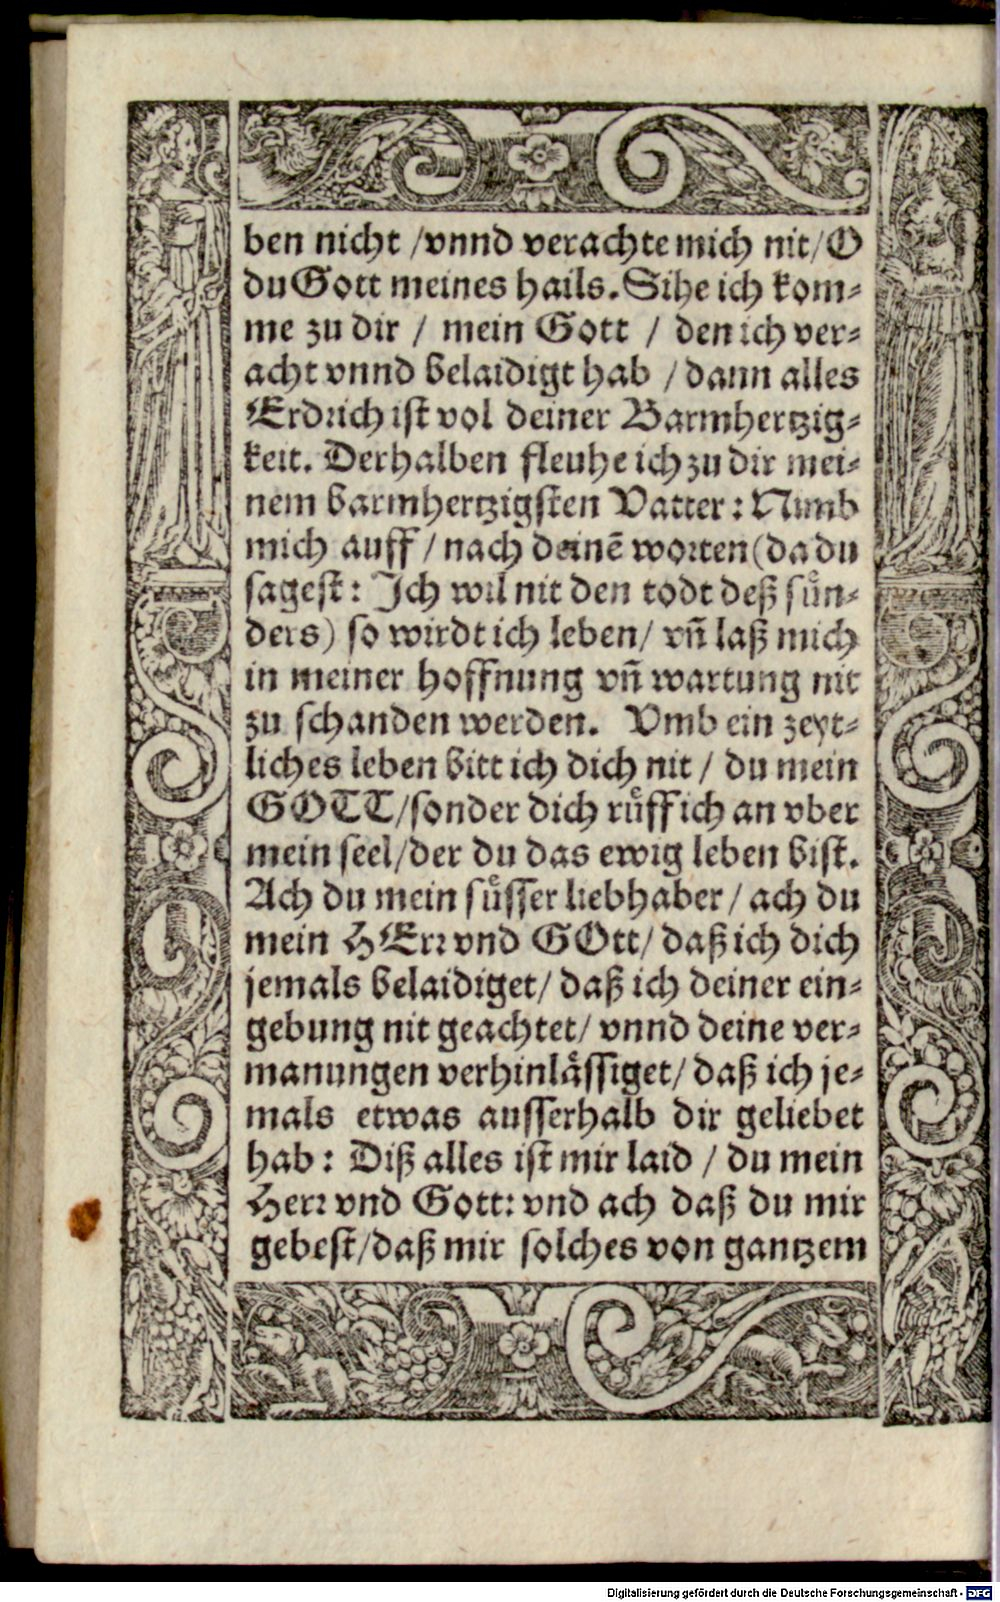 ben nicht / vnnd verachte mich nit / O
du Gott meines hails. Sihe ich kom-
me zu dir / mein Gott / den ich ver-
acht vnnd belaidigt hab / dann alles
Erdrich ist vol deiner Barmhertzig-
keit. Derhalben fleuhe ich zu dir mei-
nem barmhertzigsten Vatter: Nimb
mich auff / nach deinē worten (da du
sagest: Ich wil nit den todt deß sün-
ders) so wirdt ich leben / vñ laß mich
in meiner hoffnung vñ wartung nit
zu schanden werden. Vmb ein zeyt-
liches leben bitt ich dich nit / du mein
GOTT / sonder dich rüff ich an vber
mein seel / der du das ewig leben bist.
Ach du mein süsser liebhaber / ach du
mein HErr vnd GOtt / daß ich dich
jemals belaidiget / daß ich deiner ein-
gebung nit geachtet / vnnd deine ver-
manungen verhinlässiget / daß ich je-
mals etwas ausserhalb dir geliebet
hab: Diß alles ist mir laid / du mein
Herr vnd Gott: vnd ach daß du mir
gebest / daß mir solches von gantzem
Digitalisierung gefördert durch die Deutsche Forschungsgemeinschaft - DFG